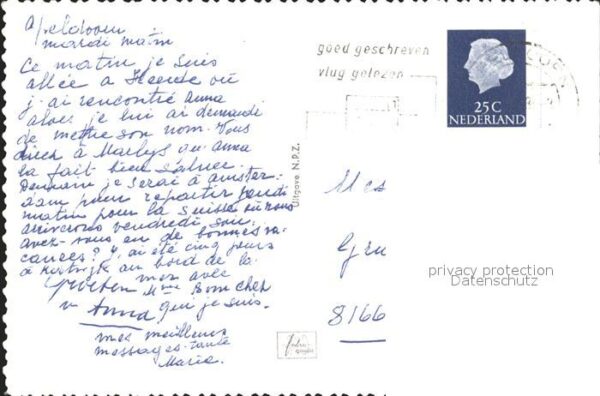 A/eldoorn
mardi matin
Ce matin je suis
allée à Heerde où
j'ai rencontré Anna
alors je lui ai demandé
de mettre son nom. Vous
direz à Marlys que Anna
la fait bien saluer.
Demain je serai à Amster-
dam pour repartir jeudi
matin pour la Suisse où nous
arriverons vendredi soir.
avez-vous eu de bonnes va-
cances? J'ai été cinq jours
à au bord de la
mer avec
Groeten Mme Bomcher
v Anna qui je suis.
mes meilleurs
messages. tante
Marie.
goed geschreven
vlug gelezen
25 C
NEDERLAND
Uitgave N.P.Z.
Mes
Gru
8166
privacy protection
Datenschutz